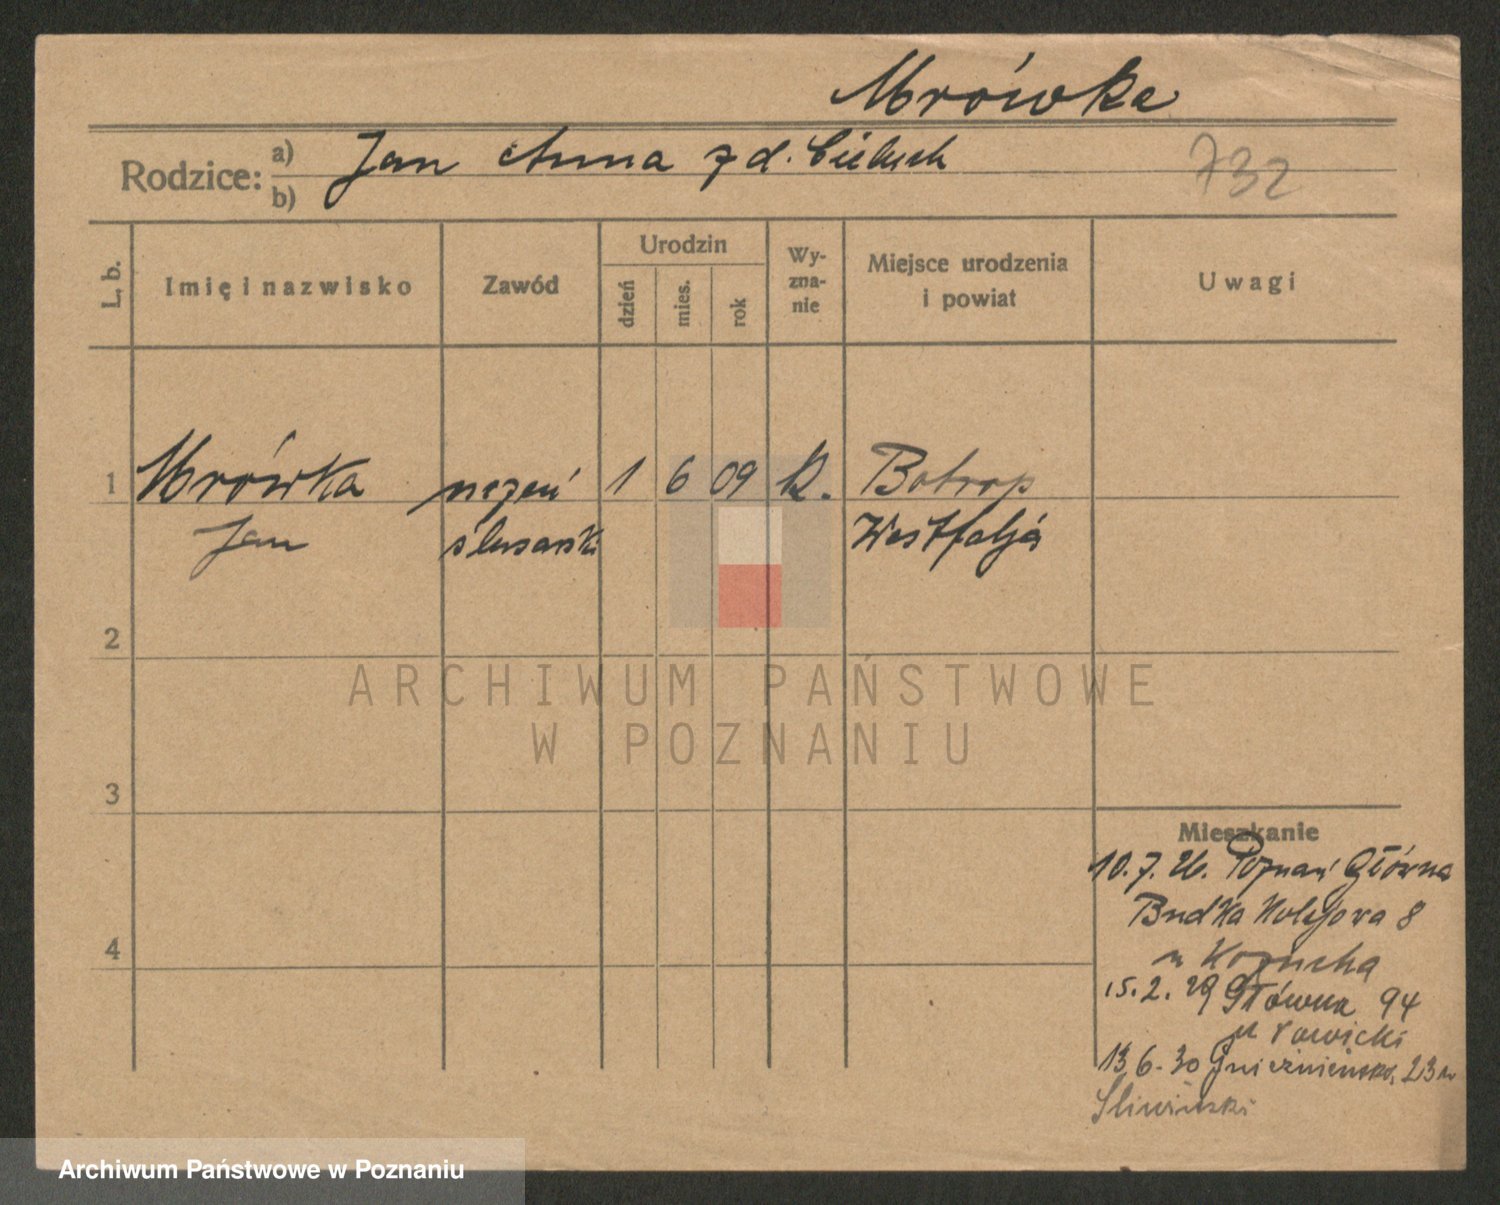 Mrówka
Rodzice: a) Jan Anna z d.
b)
732
L. b.
Imię i nazwisko
Zawód
Urodzin
dzień
mies.
rok
Wy-
zna-
nie
Miejsce urodzenia
i powiat
Uwagi
1 Mrówka uczeń 1 6 09 k. Botrop
Jan ślusarski Westfalja
2
3
4
ARCHIWUM PAŃSTWOWE
W POZNANIU
Mieszkanie
10.7.26. Poznań Główna
Budka Kolejowa 8
u
15.2.29 Główna 94
u
13.6.30 Gnieźnieńska 23 u
Śliwiński
Archiwum Państwowe w Poznaniu